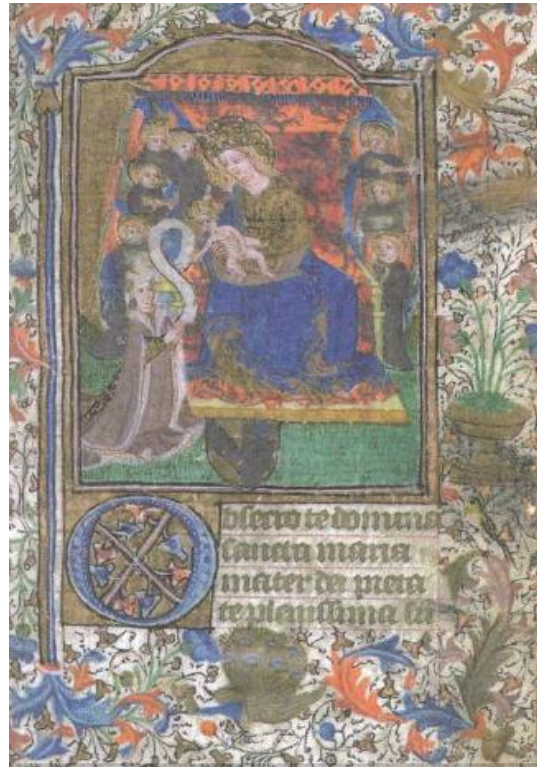 Obsecro te domina
sancta maria
mater dei pieta
te plenissima su